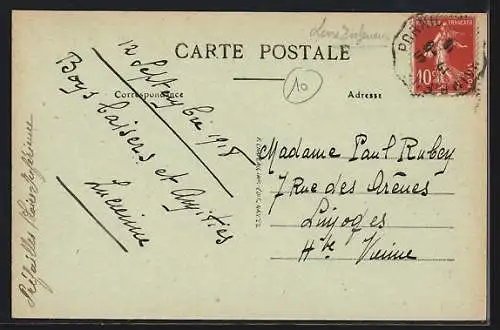 Loire Inférieure
CARTE POSTALE
10
Correspondance
Adresse
12 Septembre 1918
Bons baisers et Amitiés
Lucienne
Préfailles (Loire Inférieure
Madame Paul Rubey
7 Rue des Arènes
Limoges
Hte Vienne
FRANÇAISE
10